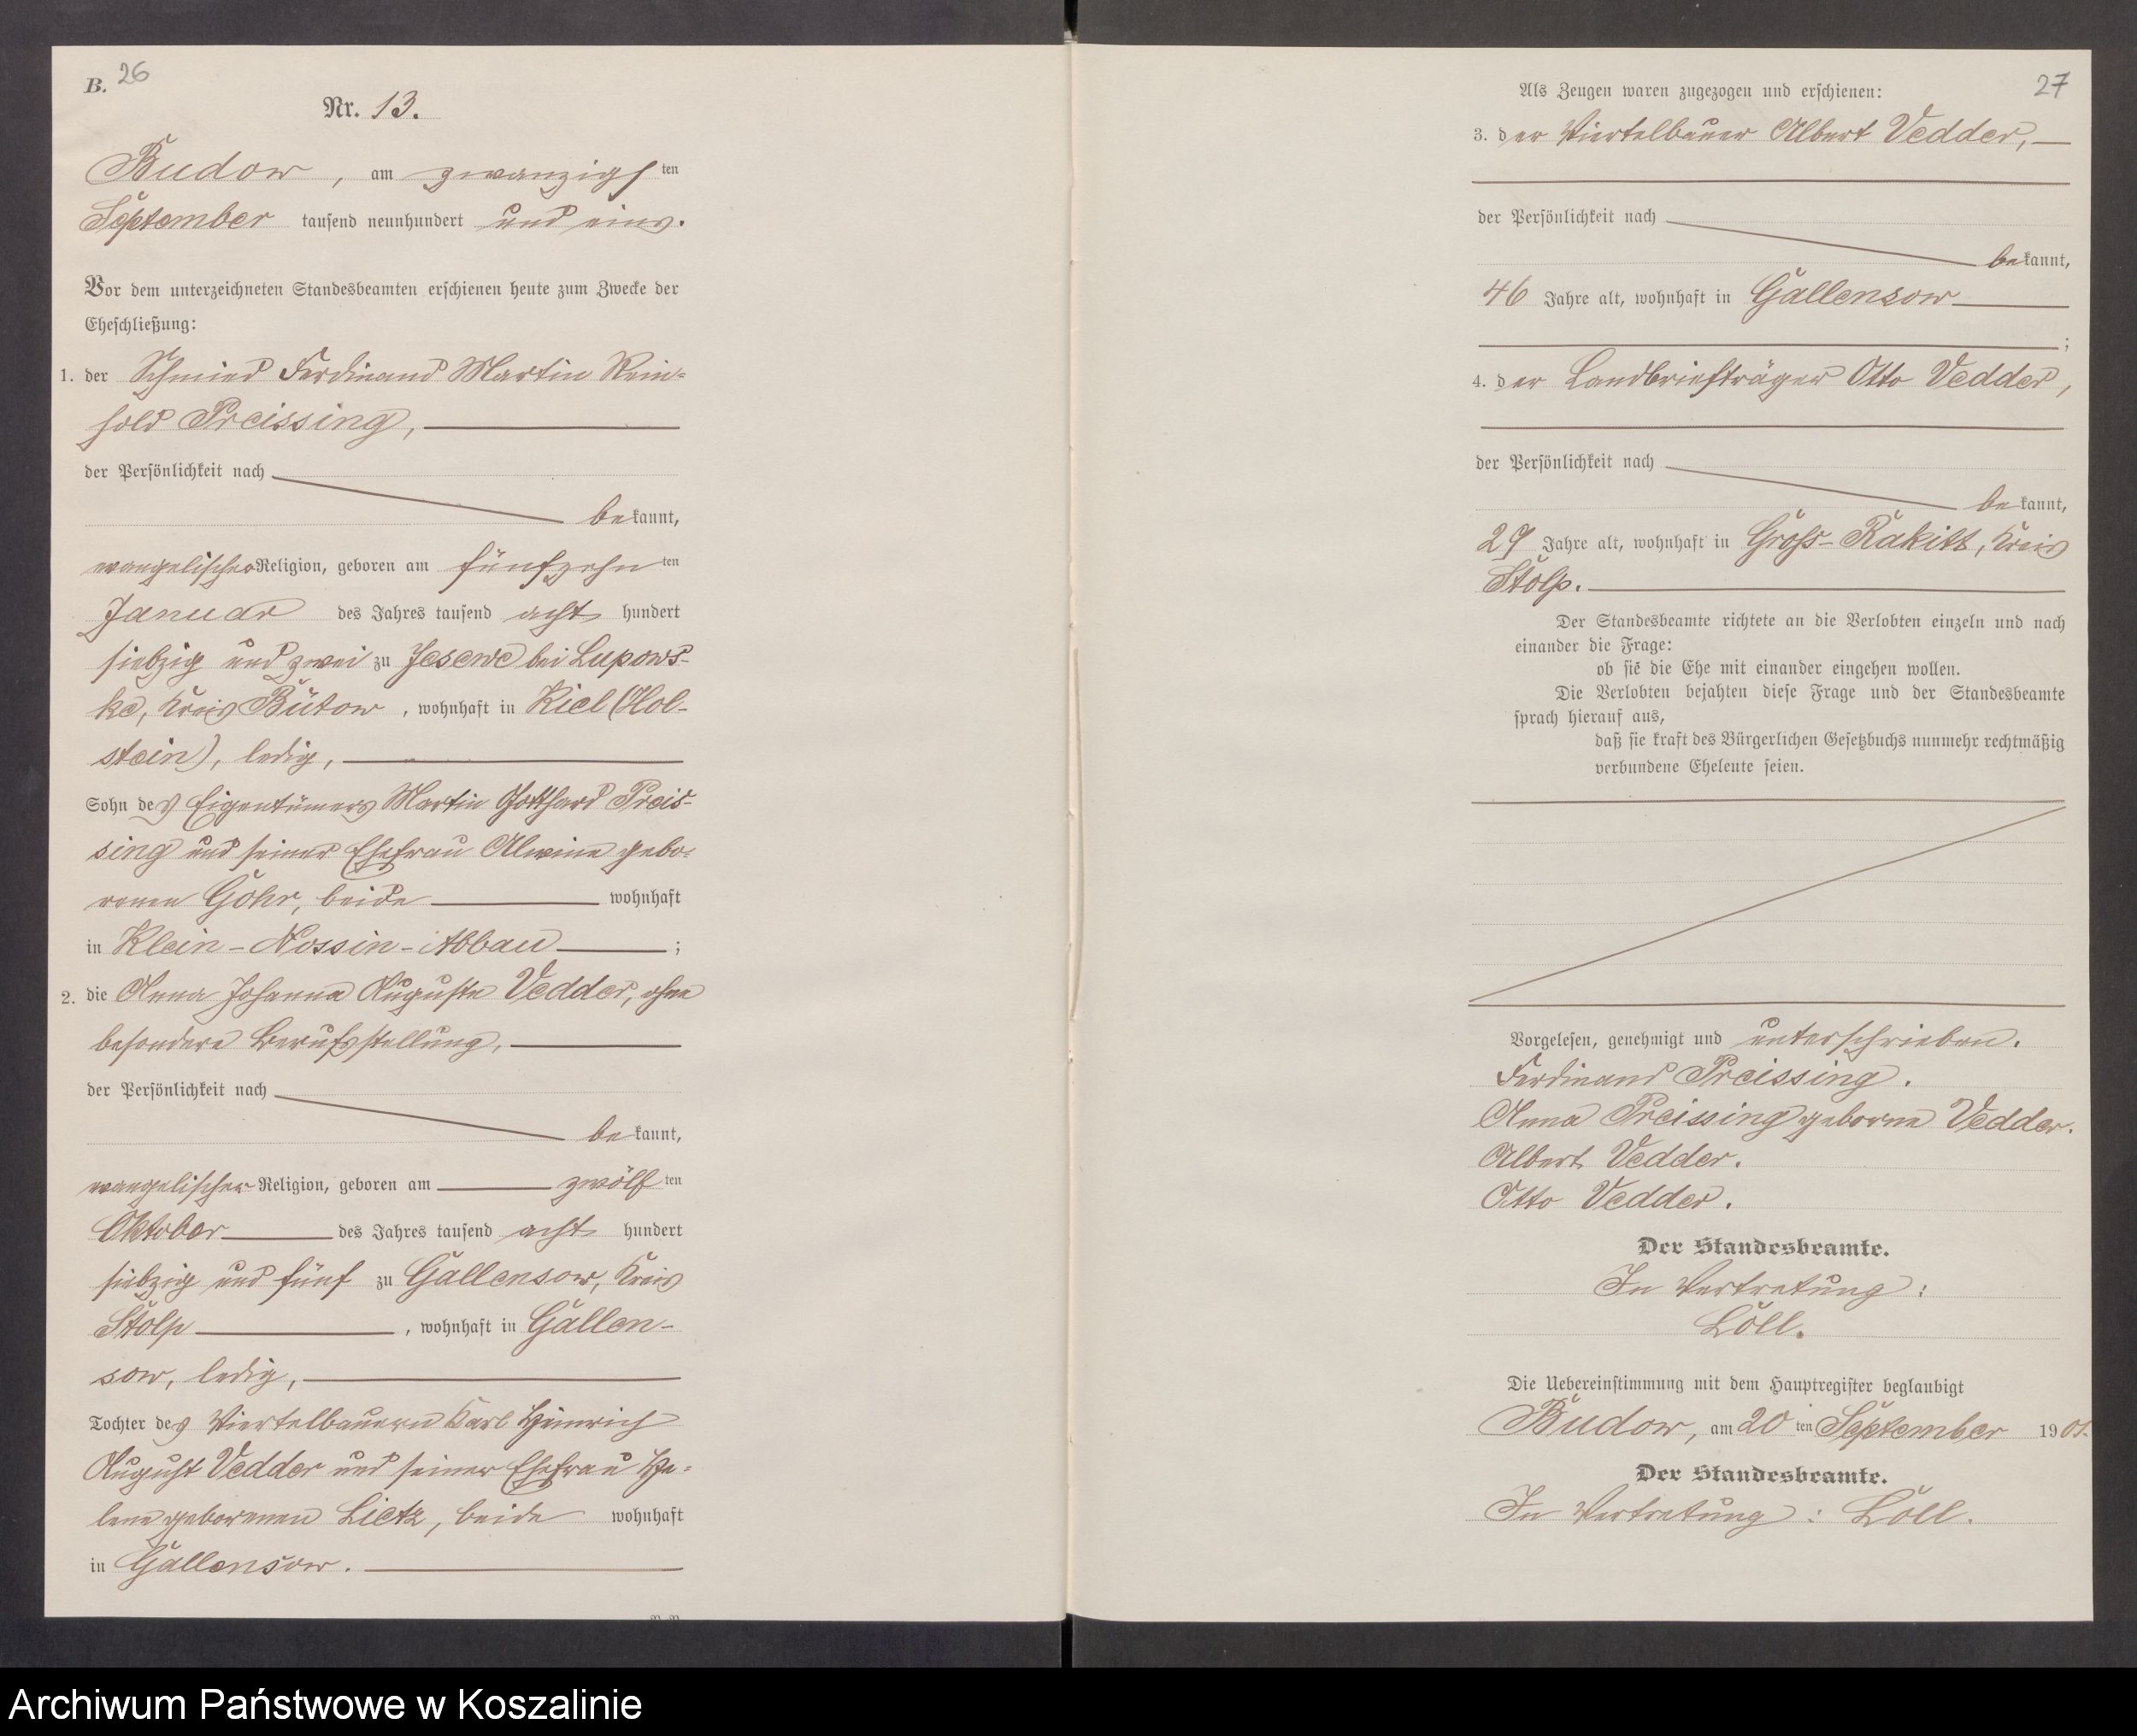 B. 26
Nr. 13.
Budow, am zwanzigsten
September tausend neunhundert und eins.
Vor dem unterzeichneten Standesbeamten erschienen heute zum Zwecke der
Eheschließung:
1. der Schmied Ferdinand Martin Rein-
hold Preissing,
der Persönlichkeit nach
bekannt,
evangelischer Religion, geboren am fünfzehnten
Januar des Jahres tausend acht hundert
siebzig und zwei zu Jesewe bei Lupows-
ke, Kreis Bütow, wohnhaft in Kiel (Hol-
stein), ledig,
Sohn des Eigentümers Martin Gotthard Preis-
sing und seiner Ehefrau Alwine gebo-
renen Göhr, beide wohnhaft
in Klein-Nossin-Abbau;
2. die Anna Johanna Auguste Vedder, ohne
besondere Berufsstellung,
der Persönlichkeit nach
bekannt,
evangelischer Religion, geboren am zwölften
Oktober des Jahres tausend acht hundert
siebzig und fünf zu Gallensow, Kreis
Stolp, wohnhaft in Gallen-
sow, ledig,
Tochter des Viertelbauern Karl Heinrich
August Vedder und seiner Ehefrau He-
lene geborenen Lietz, beide wohnhaft
in Gallensow.
27
Als Zeugen waren zugezogen und erschienen:
3. der Viertelbauer Albert Vedder,
der Persönlichkeit nach
bekannt,
46 Jahre alt, wohnhaft in Gallensow
;
4. der Landbriefträger Otto Vedder,
der Persönlichkeit nach
bekannt,
29 Jahre alt, wohnhaft in Groß-Rakitt, Kreis
Stolp.
Der Standesbeamte richtete an die Verlobten einzeln und nach
einander die Frage:
ob sie die Ehe mit einander eingehen wollen.
Die Verlobten bejahten diese Frage und der Standesbeamte
sprach hierauf aus,
daß sie kraft des Bürgerlichen Gesetzbuchs nunmehr rechtmäßig
verbundene Eheleute seien.
Vorgelesen, genehmigt und unterschrieben.
Ferdinand Preissing.
Anna Preissing geborne Vedder.
Albert Vedder.
Otto Vedder.
Der Standesbeamte.
In Vertretung:
Löll.
Die Uebereinstimmung mit dem Hauptregister beglaubigt
Budow, am 20ten September 1901.
Der Standesbeamte.
In Vertretung: Löll.
Archiwum Państwowe w Koszalinie